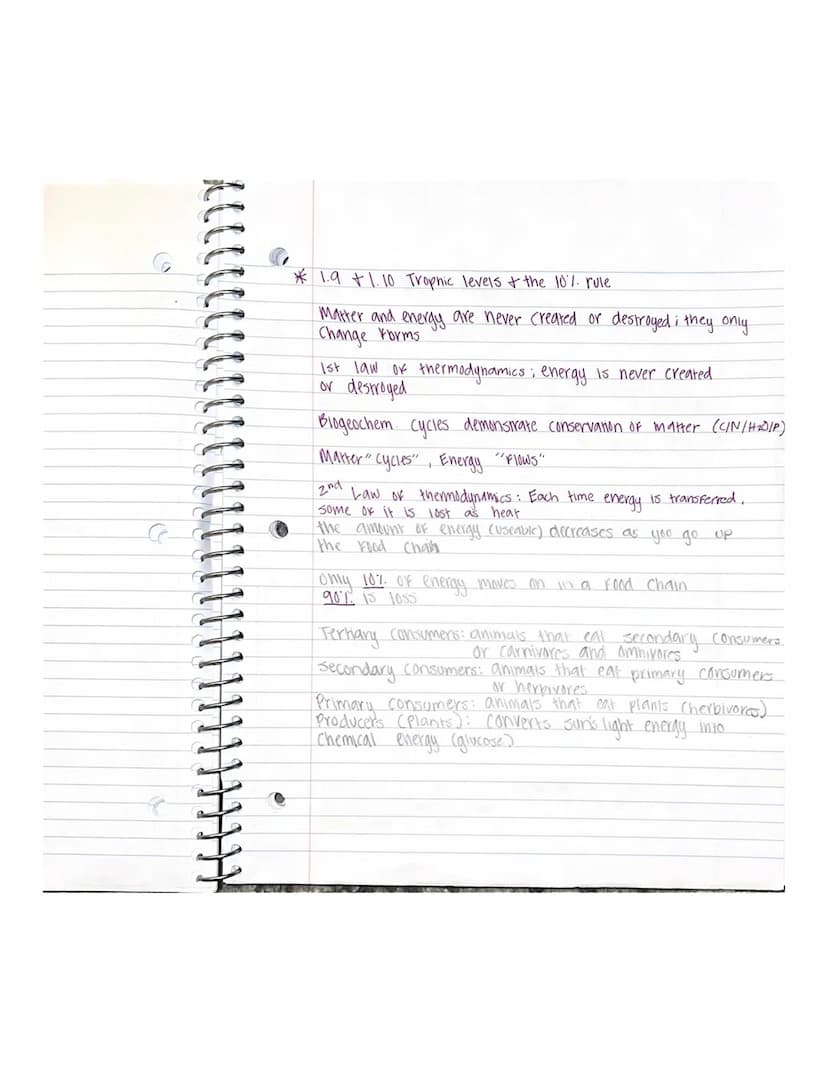 * 1.9 + 1.10 Trophic levels + the 10% rule
Matter and energy are never created or destroyed; they only
change forms
1st law of thermodynamics; energy is never created
or destroyed
Biogeochem. cycles demonstrate conservation of matter (C/N/H2O/P)
Matter "cycles", Energy "Flows"
2nd Law of thermodynamics: Each time energy is transferred,
some of it is lost as heat
the amount of energy (useable) decreases as you go up
the food chain
only 10% of energy moves on in a food chain
90% is loss
Tertiary consumers: animals that eat secondary consumers
or carnivores and omnivores
Secondary consumers: animals that eat primary consumers
or herbivores
Primary consumers: animals that eat plants (herbivores)
Producers (plants): converts sun's light energy into
chemical energy (glucose)